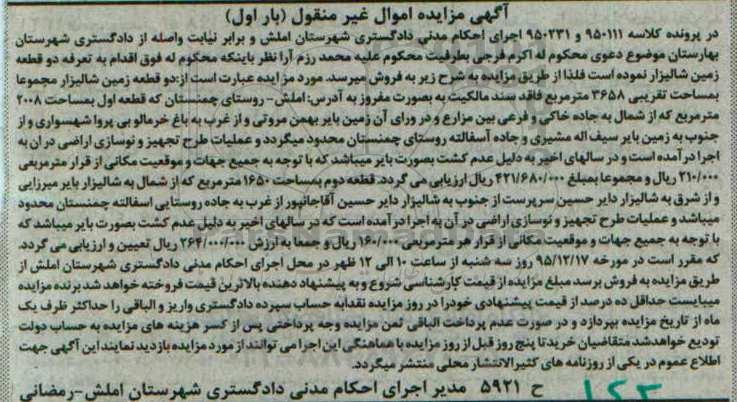 آگهی مزایده اموال غیر منقول (بار اول)
در پرونده کلاسه ۹۵۰۱۱۱ و ۹۵۰۲۳۱ اجرای احکام مدنی دادگستری شهرستان املش و برابر نیابت واصله از دادگستری شهرستان
بهارستان موضوع دعوی محکوم له اکرم فرجی بطرفیت محکوم علیه محمد رزم آرا نظر باینکه محکوم له فوق اقدام به تعرفه دو قطعه
زمین شالیزار نموده است فلذا از طریق مزایده به شرح زیر به فروش میرسد. مورد مزایده عبارت است از:دو قطعه زمین شالیزار مجموعا
بمساحت تقریبی ۳۶۵۸ مترمربع فاقد سند مالکیت به صورت مفروز به آدرس: املش- روستای چمنستان که قطعه اول بمساحت ۲۰۰۸
مترمربع که از شمال به جاده خاکی و فرعی بین مزارع و در ورای آن زمین بایر بهمن مروتی و از غرب به باغ خرمالو بی پروا شهسواری و از
جنوب به زمین بایر سیف اله مشیری و جاده آسفالته روستای چمنستان محدود میگردد و عملیات طرح تجهیز و نوسازی اراضی در ان به
اجرا در آمده است و در سالهای اخیر به دلیل عدم کشت بصورت بایر میباشد که با توجه به جمیع جهات و موقعیت مکانی از قرار مترمربعی
۲۱۰/۰۰۰ ریال و مجموعا بمبلغ ۴۲۱/۶۸۰/۰۰۰ ریال ارزیابی می گردد. قطعه دوم بمساحت ۱۶۵۰ مترمربع که از شمال به شالیزار بایر میرزایی
و از شرق به شالیزار دایر حسین سرپرست از جنوب به شالیزار دایر حسین آقاجانپور از غرب به جاده روستایی اسفالته چمنستان محدود
میباشد و عملیات طرح تجهیز و نوسازی اراضی در آن به اجرا در آمده است که در سالهای اخیر به دلیل عدم کشت بصورت بایر میباشد که
با توجه به جمیع جهات و موقعیت مکانی از قرار هر مترمربعی ۱۶۰/۰۰۰ ریال و جمعا به ارزش ۲۶۴/۰۰۰/۰۰۰ ریال تعیین و ارزیابی می گردد.
که مقرر است در مورخه ۹۵/۱۲/۱۷ روز سه شنبه از ساعت ۱۰ الی ۱۲ ظهر در محل اجرای احکام مدنی دادگستری شهرستان املش از
طریق مزایده به فروش برسد مبلغ مزایده از قیمت کارشناسی شروع و به پیشنهاد دهنده بالاترین قیمت فروخته خواهد شد برنده مزایده
میبایست حداقل ده درصد از قیمت پیشنهادی خود را در روز مزایده نقدا به حساب سپرده دادگستری واریز و الباقی را حداکثر ظرف یک
ماه از تاریخ مزایده بپردازد و در صورت عدم پرداخت الباقی ثمن مزایده وجه پرداختی پس از کسر هزینه های مزایده به حساب دولت
تودیع خواهد شد متقاضیان خرید تا پنج روز قبل از روز مزایده با هماهنگی این اجرا می توانند از مورد مزایده بازدید نمایند این آگهی جهت
اطلاع عموم در یکی از روزنامه های کثیرالانتشار محلی منتشر میگردد.
ح ۵۹۲۱ مدیر اجرای احکام مدنی دادگستری شهرستان املش-رمضانی